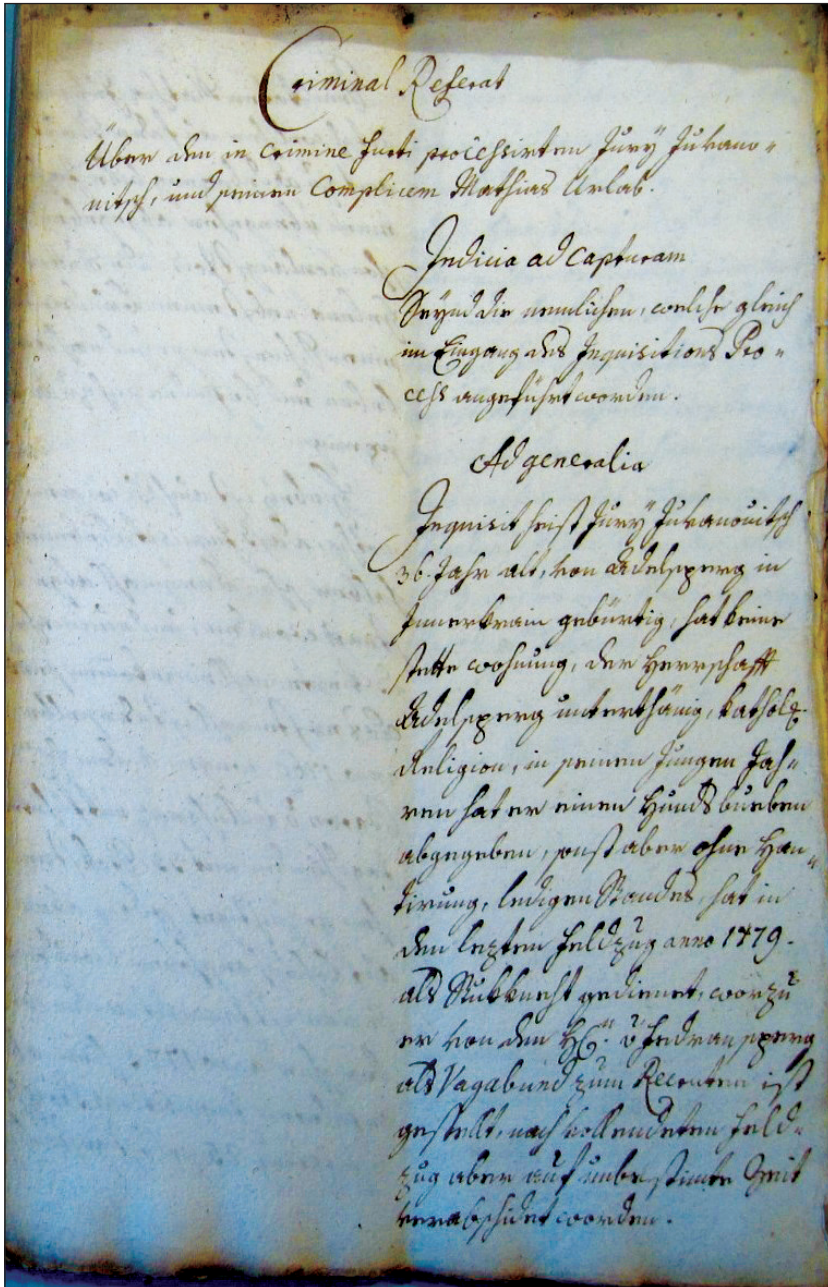 Criminal Referat
Über den in Crimine furti processirten Jury Jukano-
nitsch, und seinen Complicem Mathias Urlab.
Indicia ad Capturam
Seynd die nemlichen, welche gleich
im Eingang des Inquisitions Pro-
cess angeführt worden.
Ad generalia
Inquisit heist Jury Jukanovitsch
36. Jahr alt, von Adelsperg in
Innerkrain gebürtig, hat keine
stette wohnung, der Herrschafft
Adelsperg unterthänig, kathol.
Religion, in seinen Jungen Jah-
ren hat er einen Hundsbueben
abgegeben, sonst aber ohne Han-
tirung, ledigen Standes, hat in
den lezten Feldzug anno 1779.
als Stukknecht gedienet, worzu
er von den
als Vagabund zum Recrouten ist
gestellt, nach vollendeten Feld-
zug aber auf unbestimte Zeit
verabschidet worden.